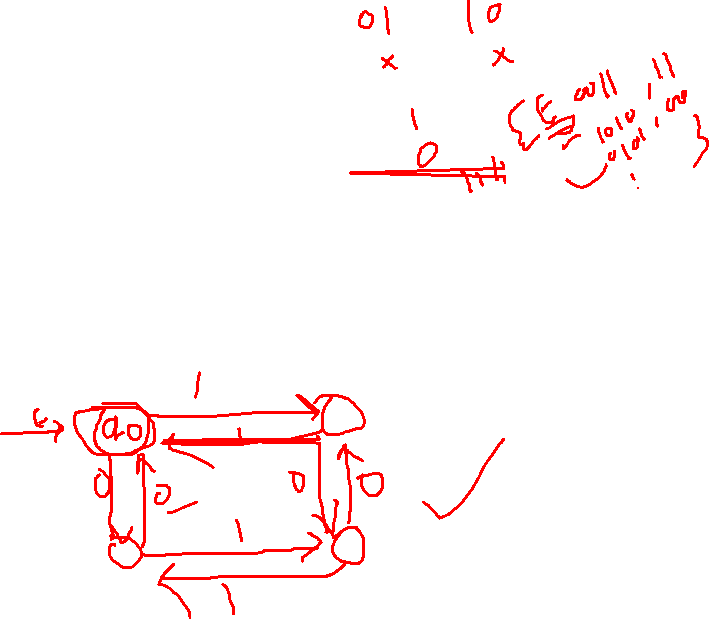 01 10
x x
{ε, 0011, 11
1010, 00
0101,
}
1
0
ε
q0
1
1
0
0
0
0
1
1